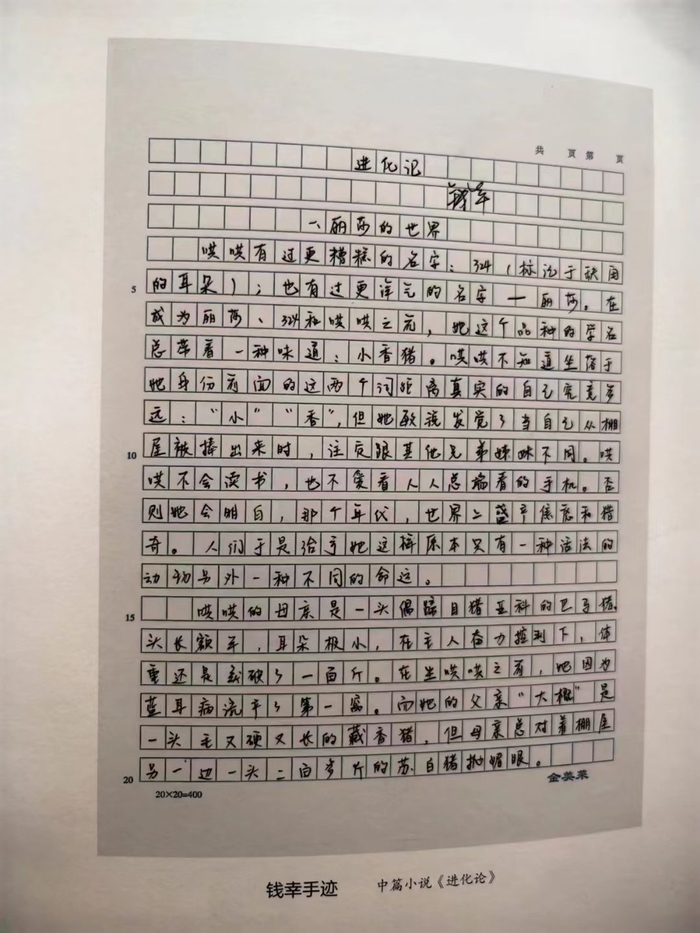 共 页 第 页
进化记
钱幸
一、丽莎的世界
哄哄有过更糟糕的名字：324（标记于缺角
5 的耳朵）；也有过更洋气的名字——丽莎。在
成为丽莎、324和哄哄之前，她这个品种的学名
总带着一种味道：小香猪。哄哄不知道坐落于
她身份前面的这两个词距离真实的自己究竟多
远："小""香"，但她敢说发觉了当自己从棚
10 屋被捧出来时，注定跟其他兄弟姊妹不同。哄
哄不会读书，也不爱看人人总端着的手机。否
则她会明白，那个年代，世界上盛产焦虑和猎
奇。人们于是给予她这样原本只有一种活法的
动物另外一种不同的命运。
15 哄哄的母亲是一头偶蹄目猪亚科的巴马猪，
头长额平，耳朵极小，在主人奋力控制下，体
重还是突破了一百斤。在生哄哄之前，她因为
蓝耳病流产了第一窝。而她的父亲"大概"是
一头毛又硬又长的藏香猪，但母亲总对着棚屋
20 另一边一头二百多斤的苏白猪抛媚眼。
20×20=400
钱幸手迹 中篇小说《进化论》